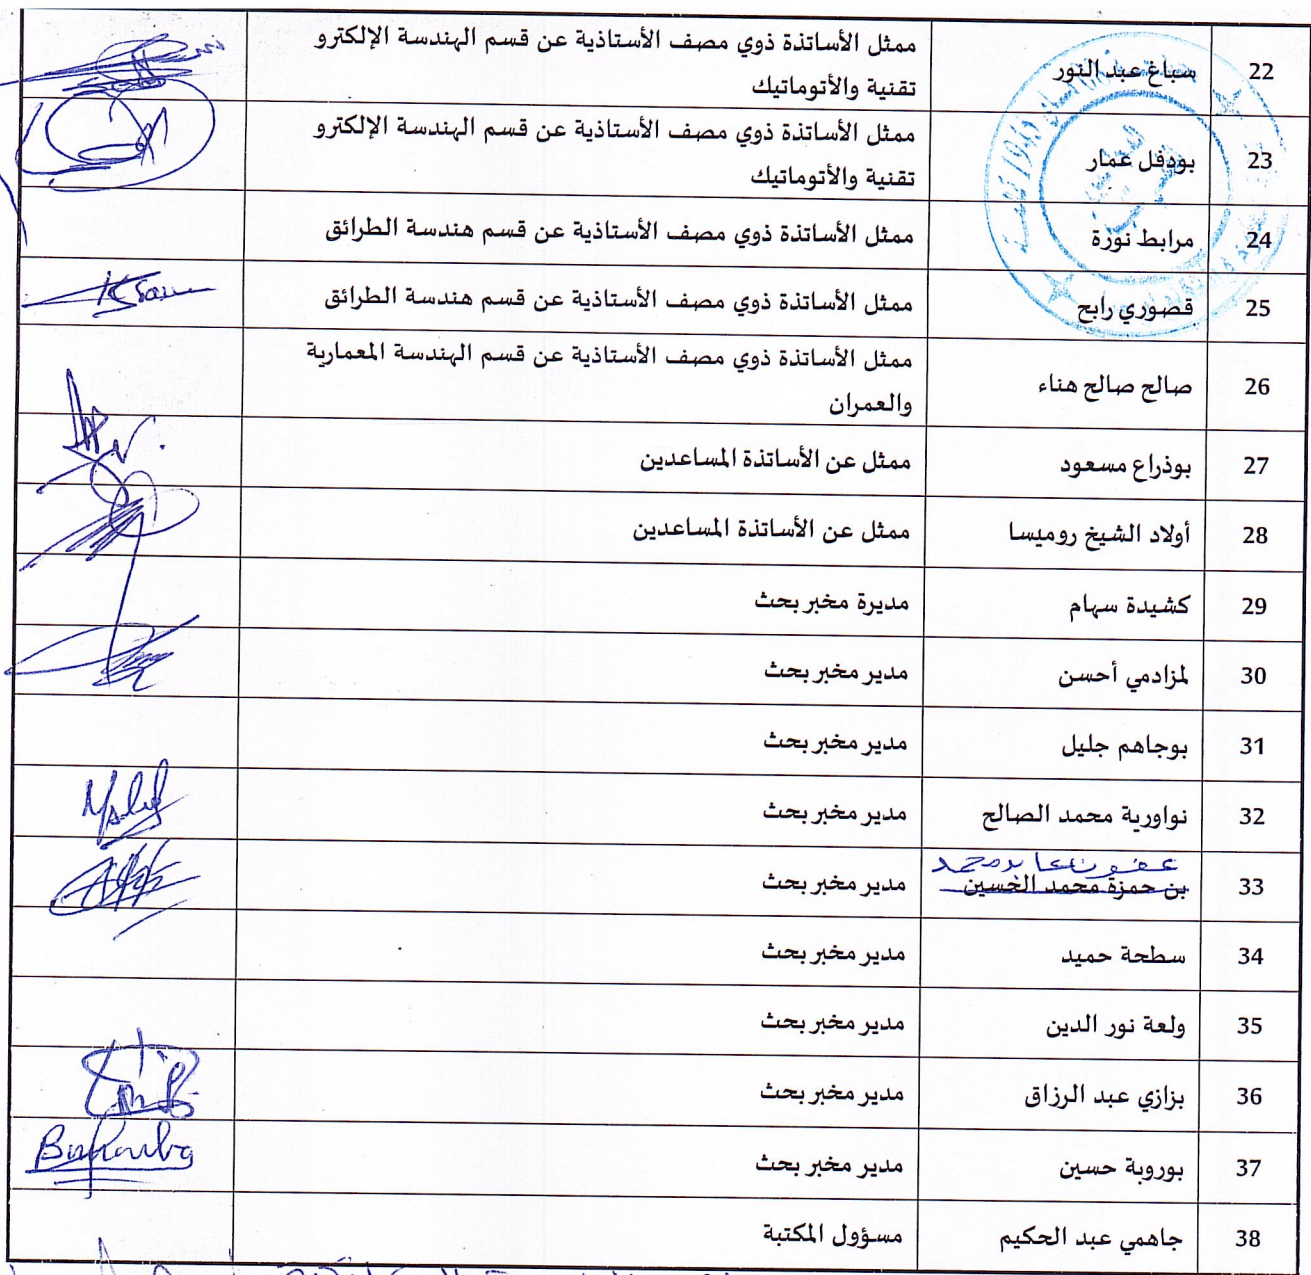 22 سباغ عبد النور ممثل الأساتذة ذوي مصف الأستاذية عن قسم الهندسة الإلكترو
تقنية والأتوماتيك
23 بودفل عمار ممثل الأساتذة ذوي مصف الأستاذية عن قسم الهندسة الإلكترو
تقنية والأتوماتيك
24 مرابط نورة ممثل الأساتذة ذوي مصف الأستاذية عن قسم هندسة الطرائق
25 قصوري رابح ممثل الأساتذة ذوي مصف الأستاذية عن قسم هندسة الطرائق
26 صالح صالح هناء ممثل الأساتذة ذوي مصف الأستاذية عن قسم الهندسة المعمارية
والعمران
27 بوذراع مسعود ممثل عن الأساتذة المساعدين
28 أولاد الشيخ روميسا ممثل عن الأساتذة المساعدين
29 كشيدة سهام مديرة مخبر بحث
30 لمزادمي أحسن مدير مخبر بحث
31 بوجاهم جليل مدير مخبر بحث
32 نواورية محمد الصالح مدير مخبر بحث
محمد
33 بن حمزة محمد الحسين مدير مخبر بحث
34 سطحة حميد مدير مخبر بحث
35 ولعة نور الدين مدير مخبر بحث
36 بزازي عبد الرزاق مدير مخبر بحث
37 بوروبة حسين مدير مخبر بحث
38 جاهمي عبد الحكيم مسؤول المكتبة